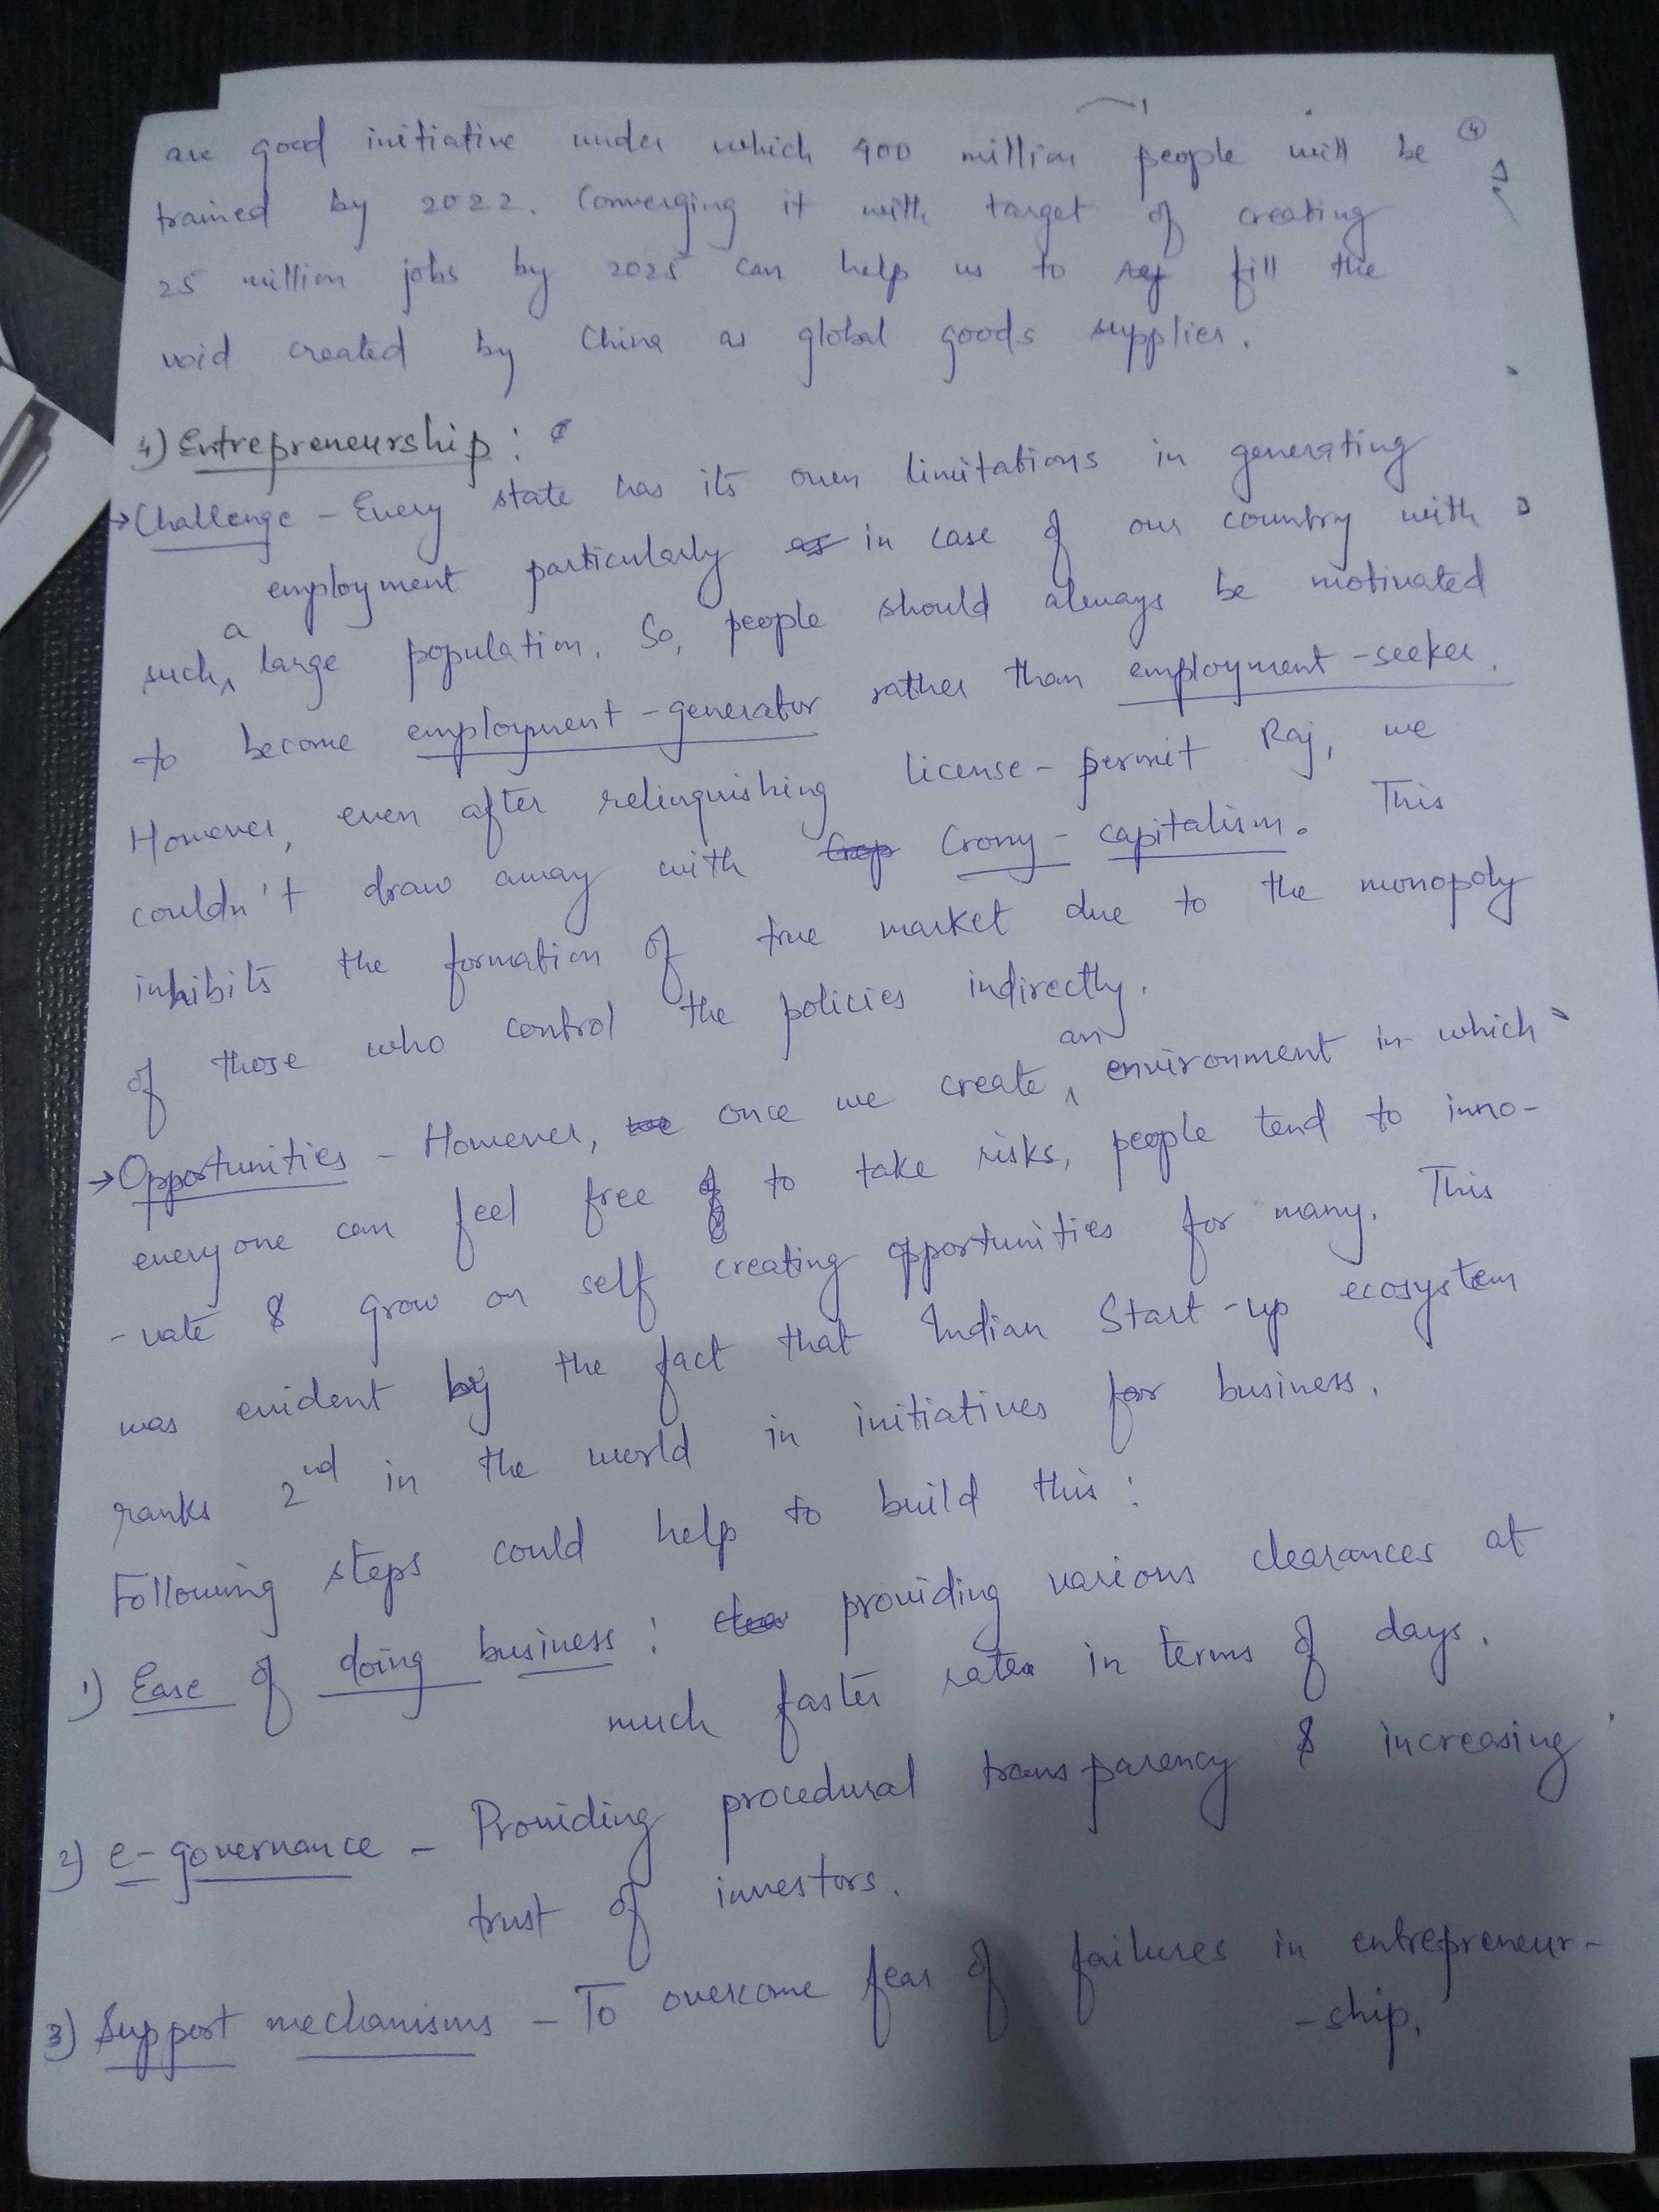 are good initiative under which 400 million people will be 4
trained by 2022. Converging it with target of creating
25 million jobs by 2025 can help us to fill the
void created by China as global goods supplier.
4) Entrepreneurship :
→ Challenge - Every state has its own limitations in generating
employment particularly in case of our country with
such a large population. So, people should always be motivated
to become employment-generator rather than employment-seeker.
However, even after relinquishing license-permit Raj, we
couldn't draw away with Crony-capitalism. This
inhibits the formation of true market due to the monopoly
of those who control the policies indirectly.
→ Opportunities - However, once we create an environment in which
everyone can feel free to take risks, people tend to inno-
-vate & grow on self creating opportunities for many. This
was evident by the fact that Indian Start-up ecosystem
ranks 2nd in the world in initiatives for business.
Following steps could help to build this :
1) Ease of doing business : providing various clearances at
much faster rate in terms of days.
2) e-governance - Providing procedural transparency & increasing
trust of investors.
3) Support mechanisms - To overcome fear of failures in entrepreneur-
-ship.